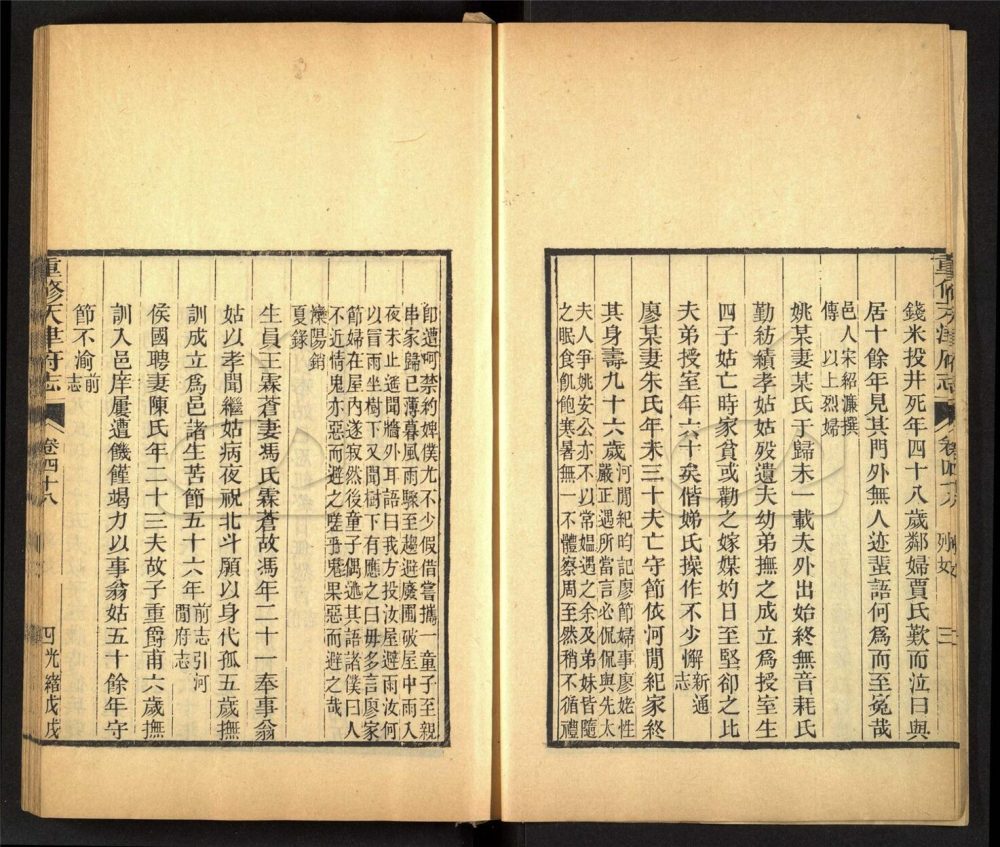 錢米投井死年四十八歲鄰婦賈氏歎而泣曰與
居十餘年見其門外無人迹蜚語何爲而至冤哉
邑人宋紹濂撰
傳 以上烈婦
姚某妻某氏于歸未一載夫外出始終無音耗氏
勤紡績孝姑姑歿遺夫幼弟撫之成立爲授室生
四子姑亡時家貧或勸之嫁媒妁日至堅卻之比
夫弟授室年六十矣偕娣氏操作不少懈新通
志
廖某妻朱氏年未三十夫亡守節依河閒紀家終
其身壽九十六歲河閒紀昀記廖節婦事廖姥性
嚴正遇所當言必侃侃與先太
夫人爭姚安公亦不以常媼遇之余及弟妹皆隨
之眠食飢飽寒暑無一不體察周至然稍不循禮
卽遭呵禁約婢僕尤不少假借嘗攜一童子至親
串家歸已薄暮風雨驟至趨避廢圃破屋中雨入
夜未止遙聞牆外耳語曰我方投汝屋避雨汝何
以冒雨坐樹下又聞樹下有應之曰毋多言廖家
節婦在屋內遂寂然後童子偶述其語諸僕曰人
不近情鬼亦惡而避之嗟乎鬼果惡而避之哉
灤陽銷
夏錄
生員王霖蒼妻馮氏霖蒼故馮年二十一奉事翁
姑以孝聞繼姑病夜祝北斗願以身代孤五歲撫
訓成立爲邑諸生苦節五十六年前志引河
閒府志
侯國聘妻陳氏年二十三夫故子重爵甫六歲撫
訓入邑庠屢遭饑饉竭力以事翁姑五十餘年守
節不渝前
志
重修天津府志 卷四十八 四 光緒戊戌